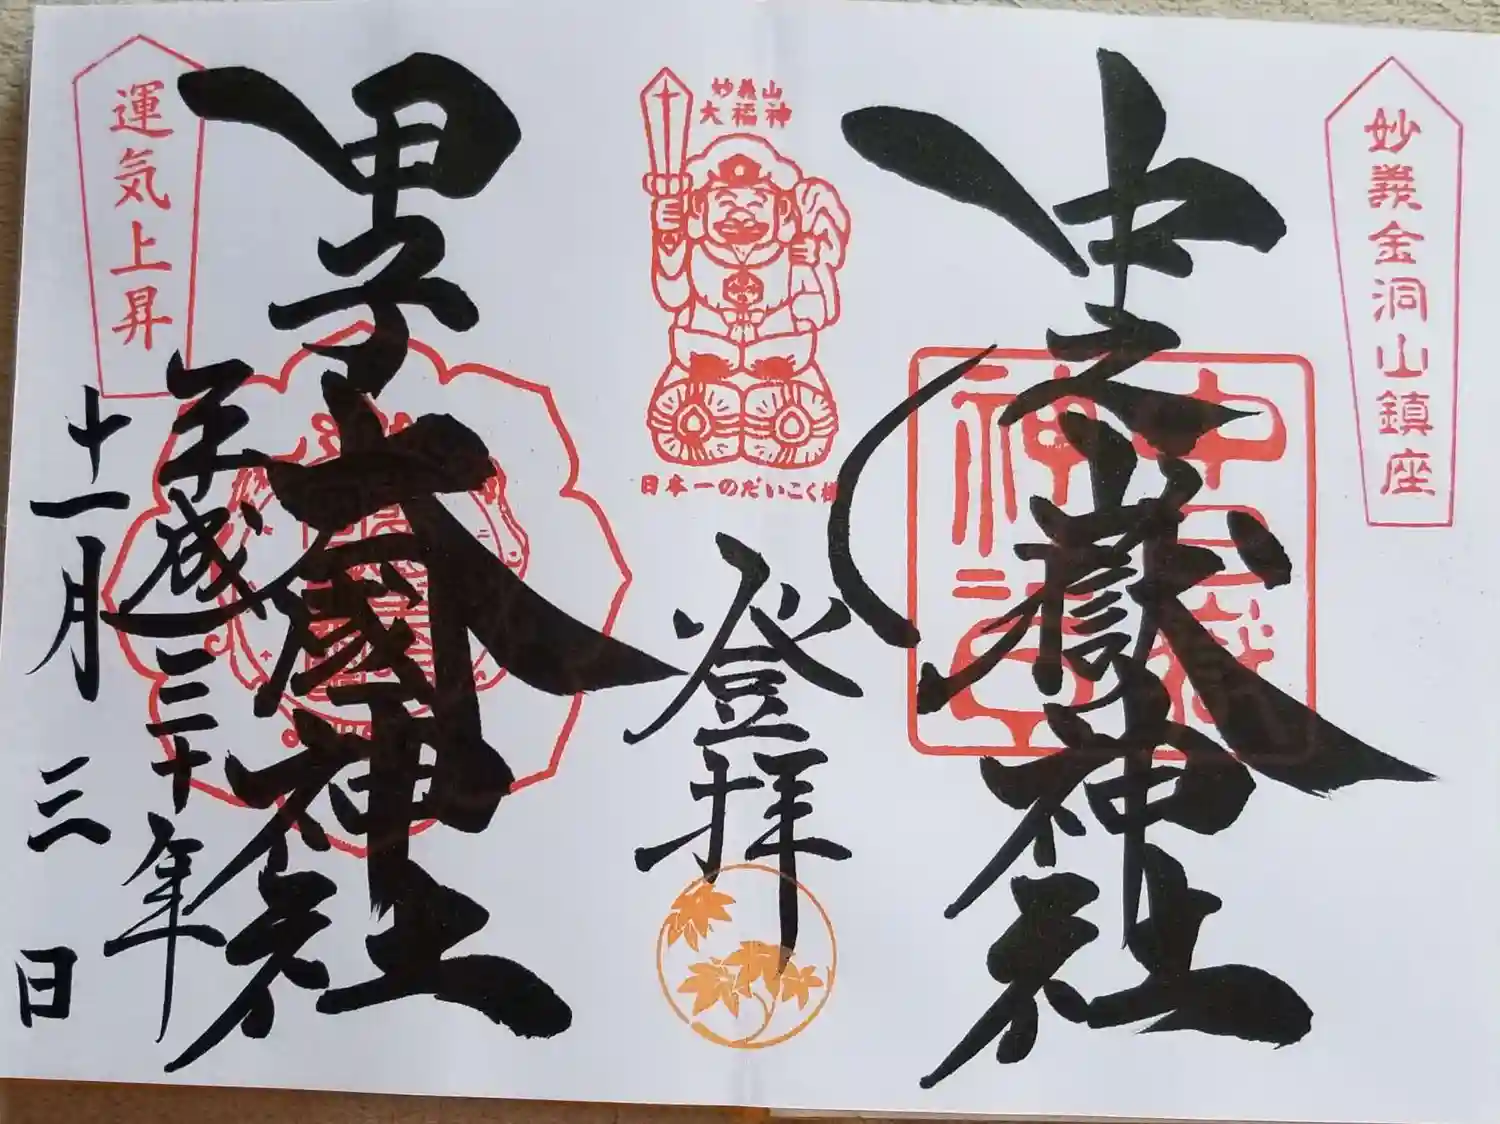 妙義金洞山鎮座
中之嶽神社
妙義山
大福神
日本一のだいこく様
登拝
甲子大國神社
運気上昇
平成三十年
十一月三日